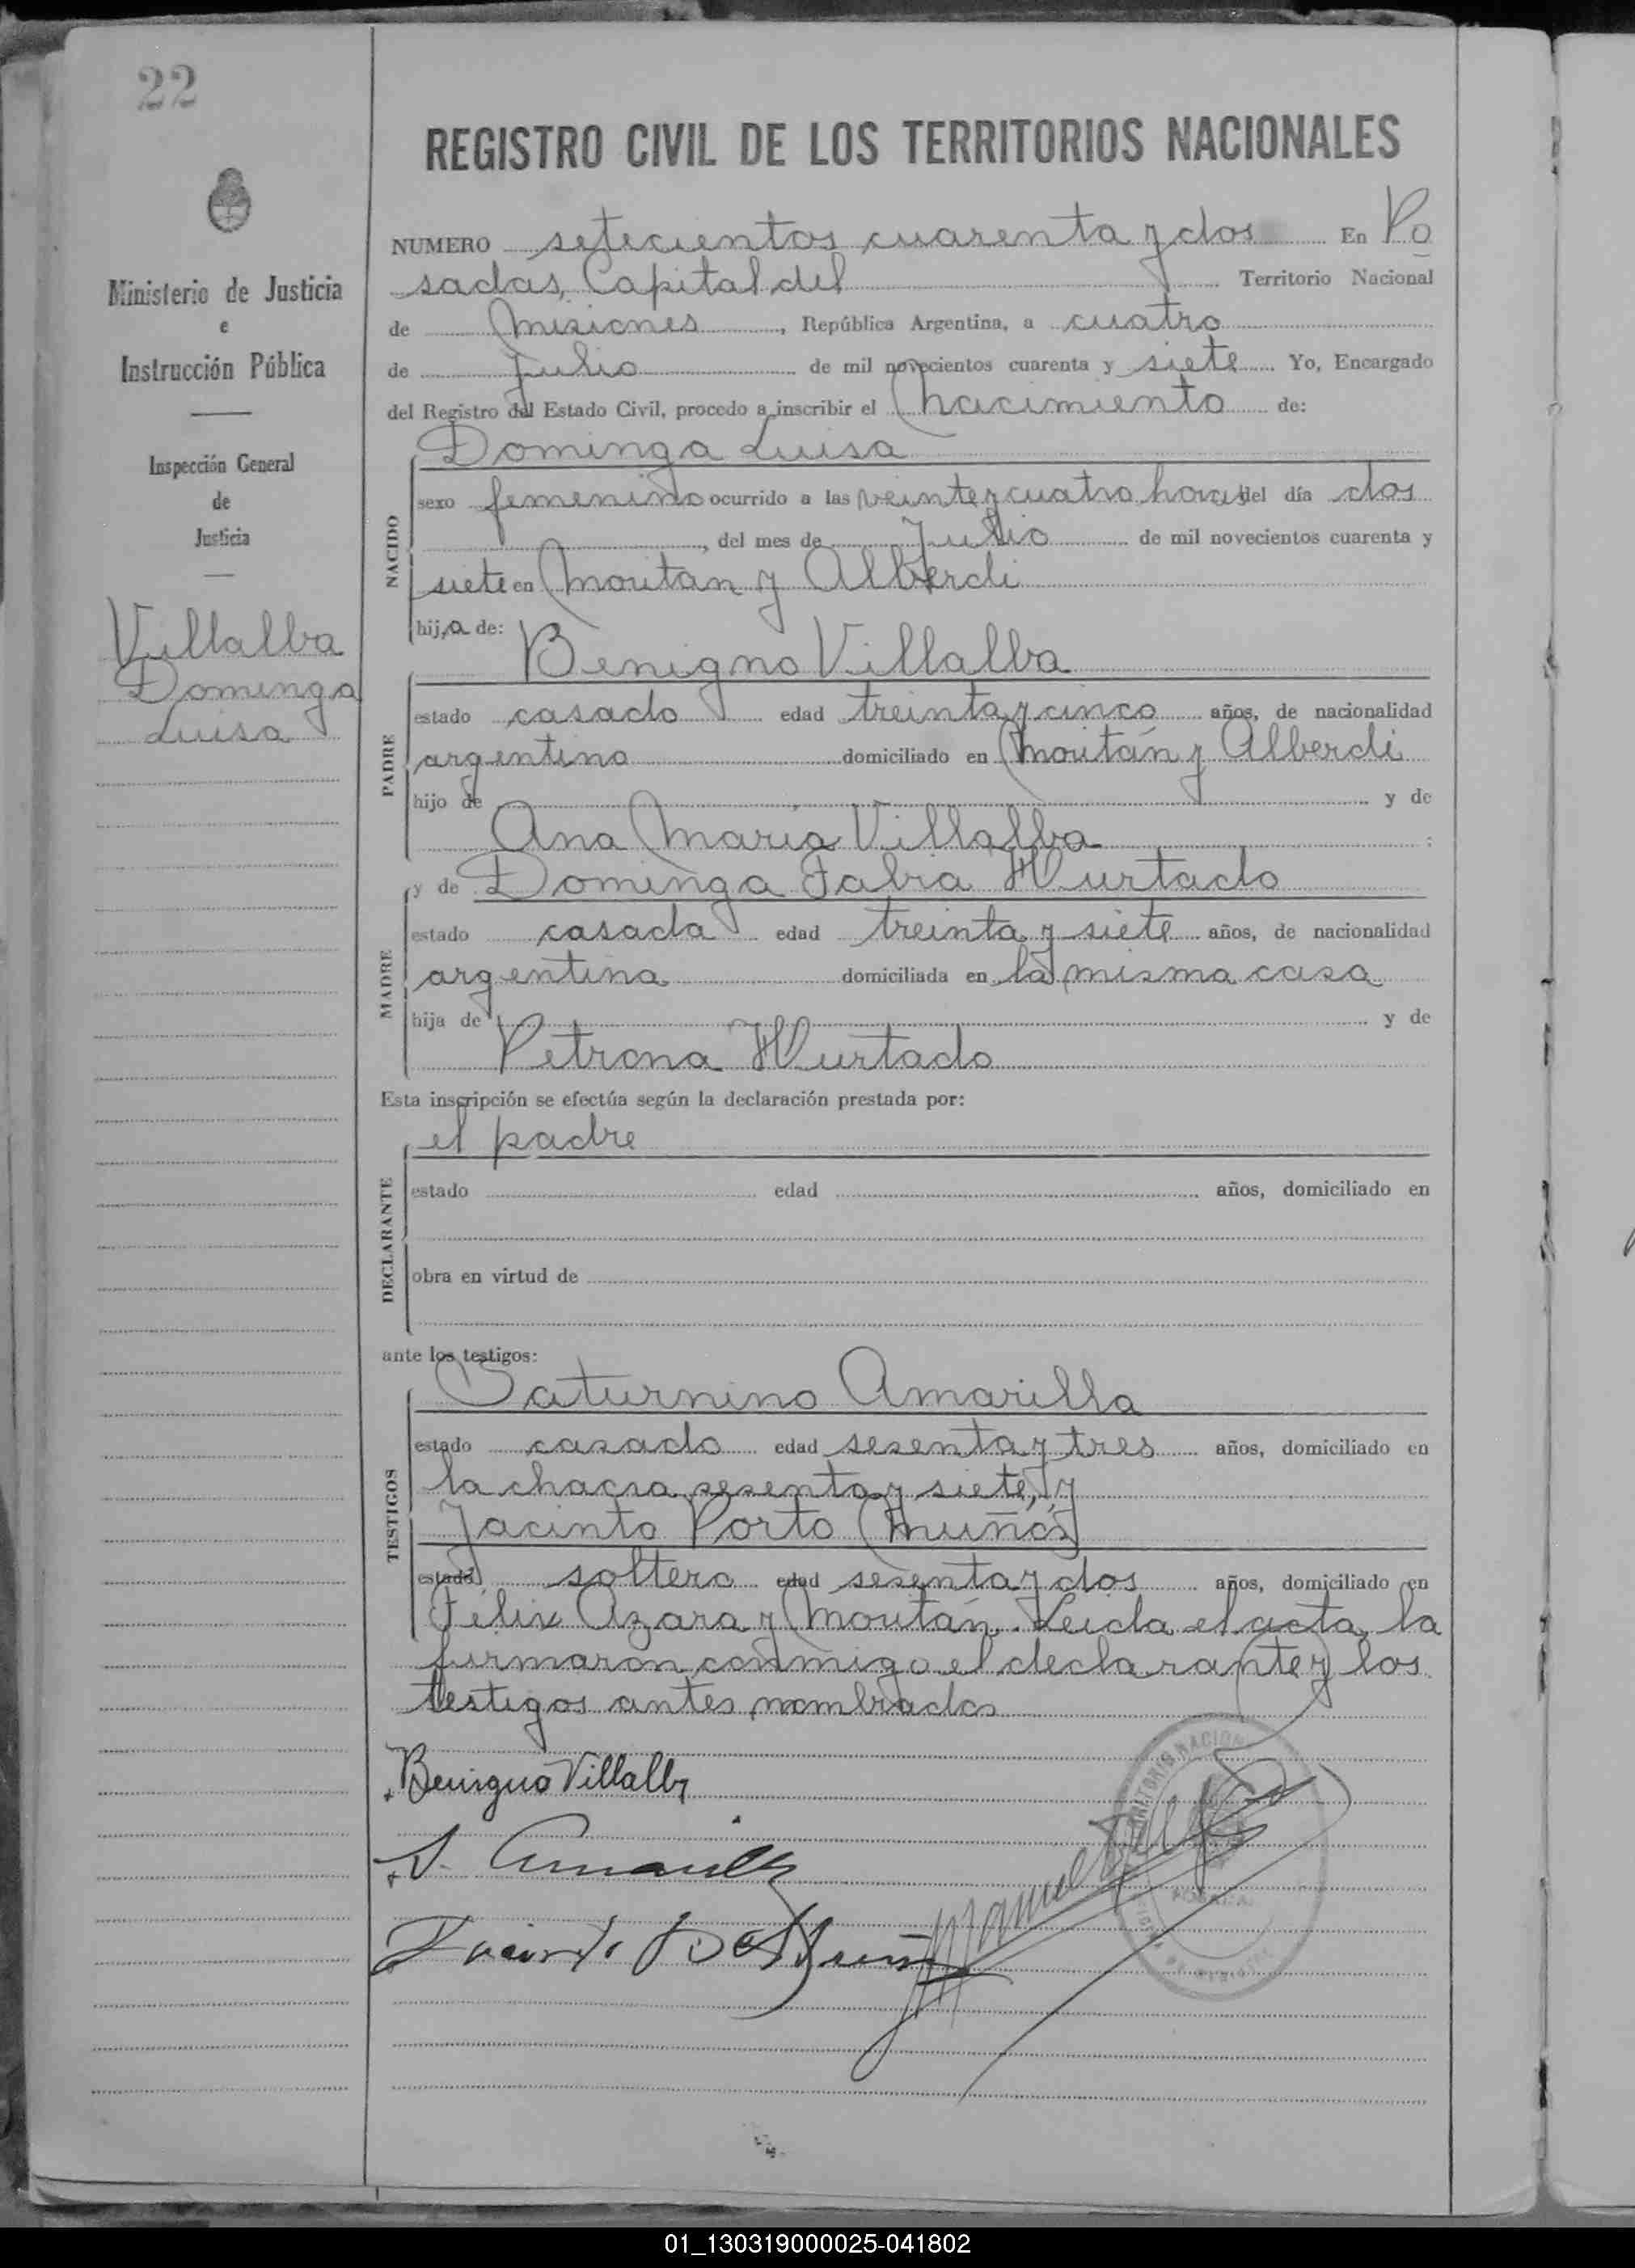 22
REGISTRO CIVIL DE LOS TERRITORIOS NACIONALES
Ministerio de Justicia
e
Instrucción Pública
Inspección General
de
Justicia
Villalba
Dominga
Luisa
NUMERO setecientos cuarenta y dos En Po
sadas, Capital del Territorio Nacional
de Misiones, República Argentina, a cuatro
de Julio de mil novecientos cuarenta y siete Yo, Encargado
del Registro del Estado Civil, procedo a inscribir el nacimiento de:
Dominga Luisa
NACIDO
sexo femenino ocurrido a las veinte y cuatro horas del día dos
, del mes de Julio de mil novecientos cuarenta y
siete en Moutan y Alberdi
hija de:
Benigno Villalba
PADRE
estado casado edad treinta y cinco años, de nacionalidad
argentino domiciliado en Moután y Alberdi
hijo de y de
Ana María Villalba ;
y de Dominga Fabia Hurtado
MADRE
estado casada edad treinta y siete años, de nacionalidad
argentina domiciliada en la misma casa
hija de y de
Petrona Hurtado
Esta inscripción se efectúa según la declaración prestada por:
el padre
DECLARANTE
estado edad años, domiciliado en
obra en virtud de
ante los testigos:
Saturnino Amarilla
TESTIGOS
estado casado edad sesenta y tres años, domiciliado en
la chacra sesenta y siete, y
Jacinto Porto Muñós
estado soltero edad sesenta y dos años, domiciliado en
Félix Azara y Moután. Leida el acta, la
firmaron conmigo el declarante y los
testigos antes nombrados
Benigno Villalba
S. Amarilla
Manuel
01_130319000025-041802